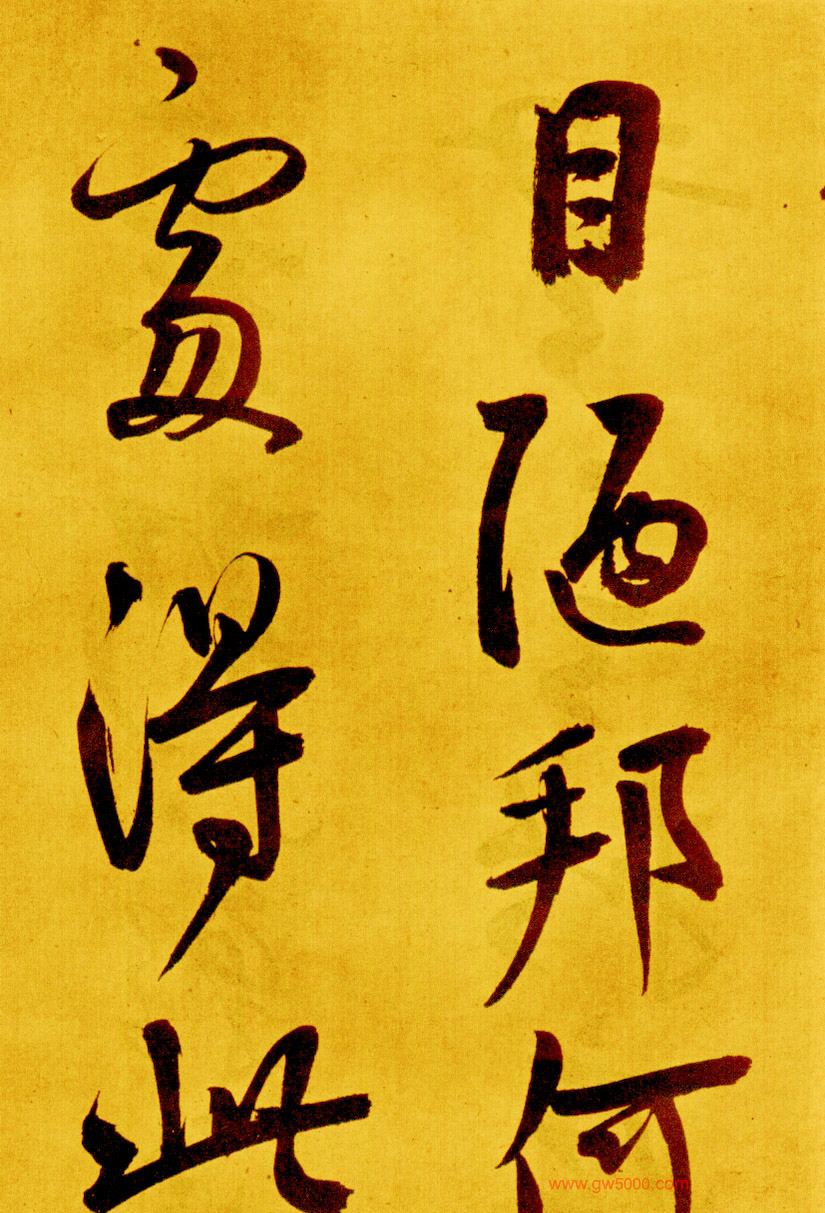 目陋邦何
處得此
www.gw5000.com